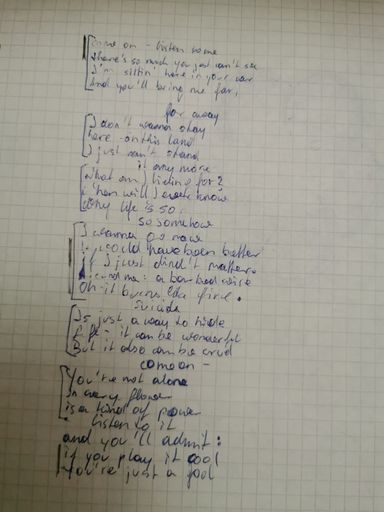 come on - listen some
there's so much you just can't see
I'm sittin' here in your car
And you'll bring me far,
far away
I don't wanna stay
here - on this land
I just can't stand
it any more
What am I living for?
When will I ever know
why life is so
so somehow
I wanna go now
it could have been better
if I just didn't matter
around me: a barbed wire
oh - it burns like fire.
Suicide
Is just a way to hide
Life - it can be wonderful
But it also can be cruel
come on -
You're not alone
In every flower
is a kind of power
listen to it
and you'll admit:
if you play it cool
You're just a fool